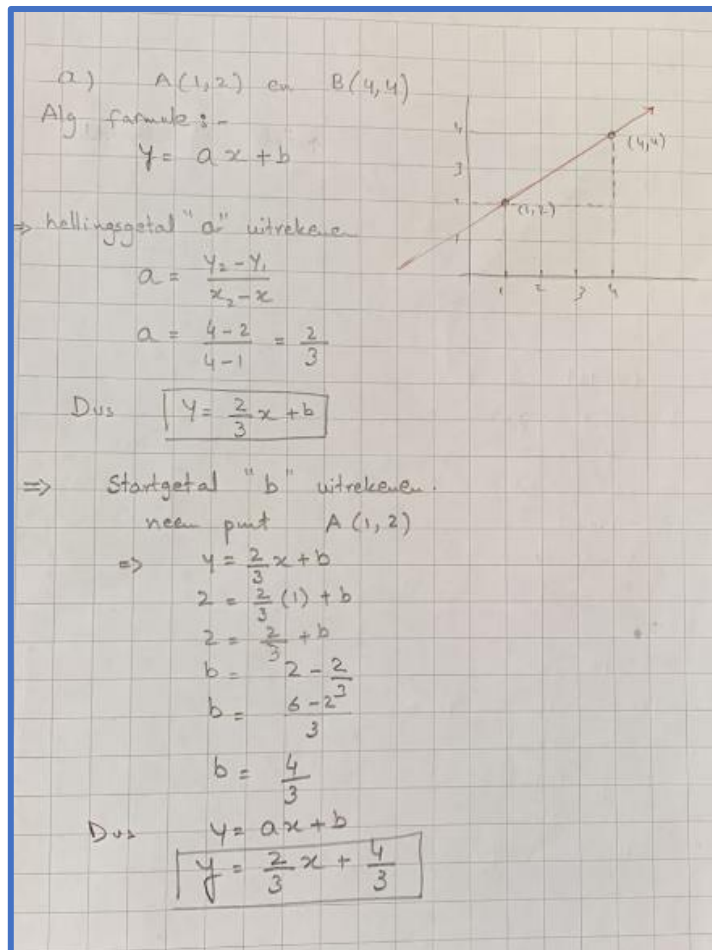 a) A(1,2) en B(4,4)
Alg. formule :-
y = ax + b
⇒ hellingsgetal "a" uitrekenen
a = (y₂ - y₁)/(x₂ - x)
a = (4 - 2)/(4 - 1) = 2/3
Dus y = 2/3 x + b
⇒ Startgetal "b" uitrekenen.
neem punt A(1,2)
⇒ y = 2/3 x + b
2 = 2/3 (1) + b
2 = 2/3 + b
b = 2 - 2/3
b = (6 - 2)/3
b = 4/3
Dus y = ax + b
y = 2/3 x + 4/3
4
(4,4)
3
2
(1,2)
1
1 2 3 4